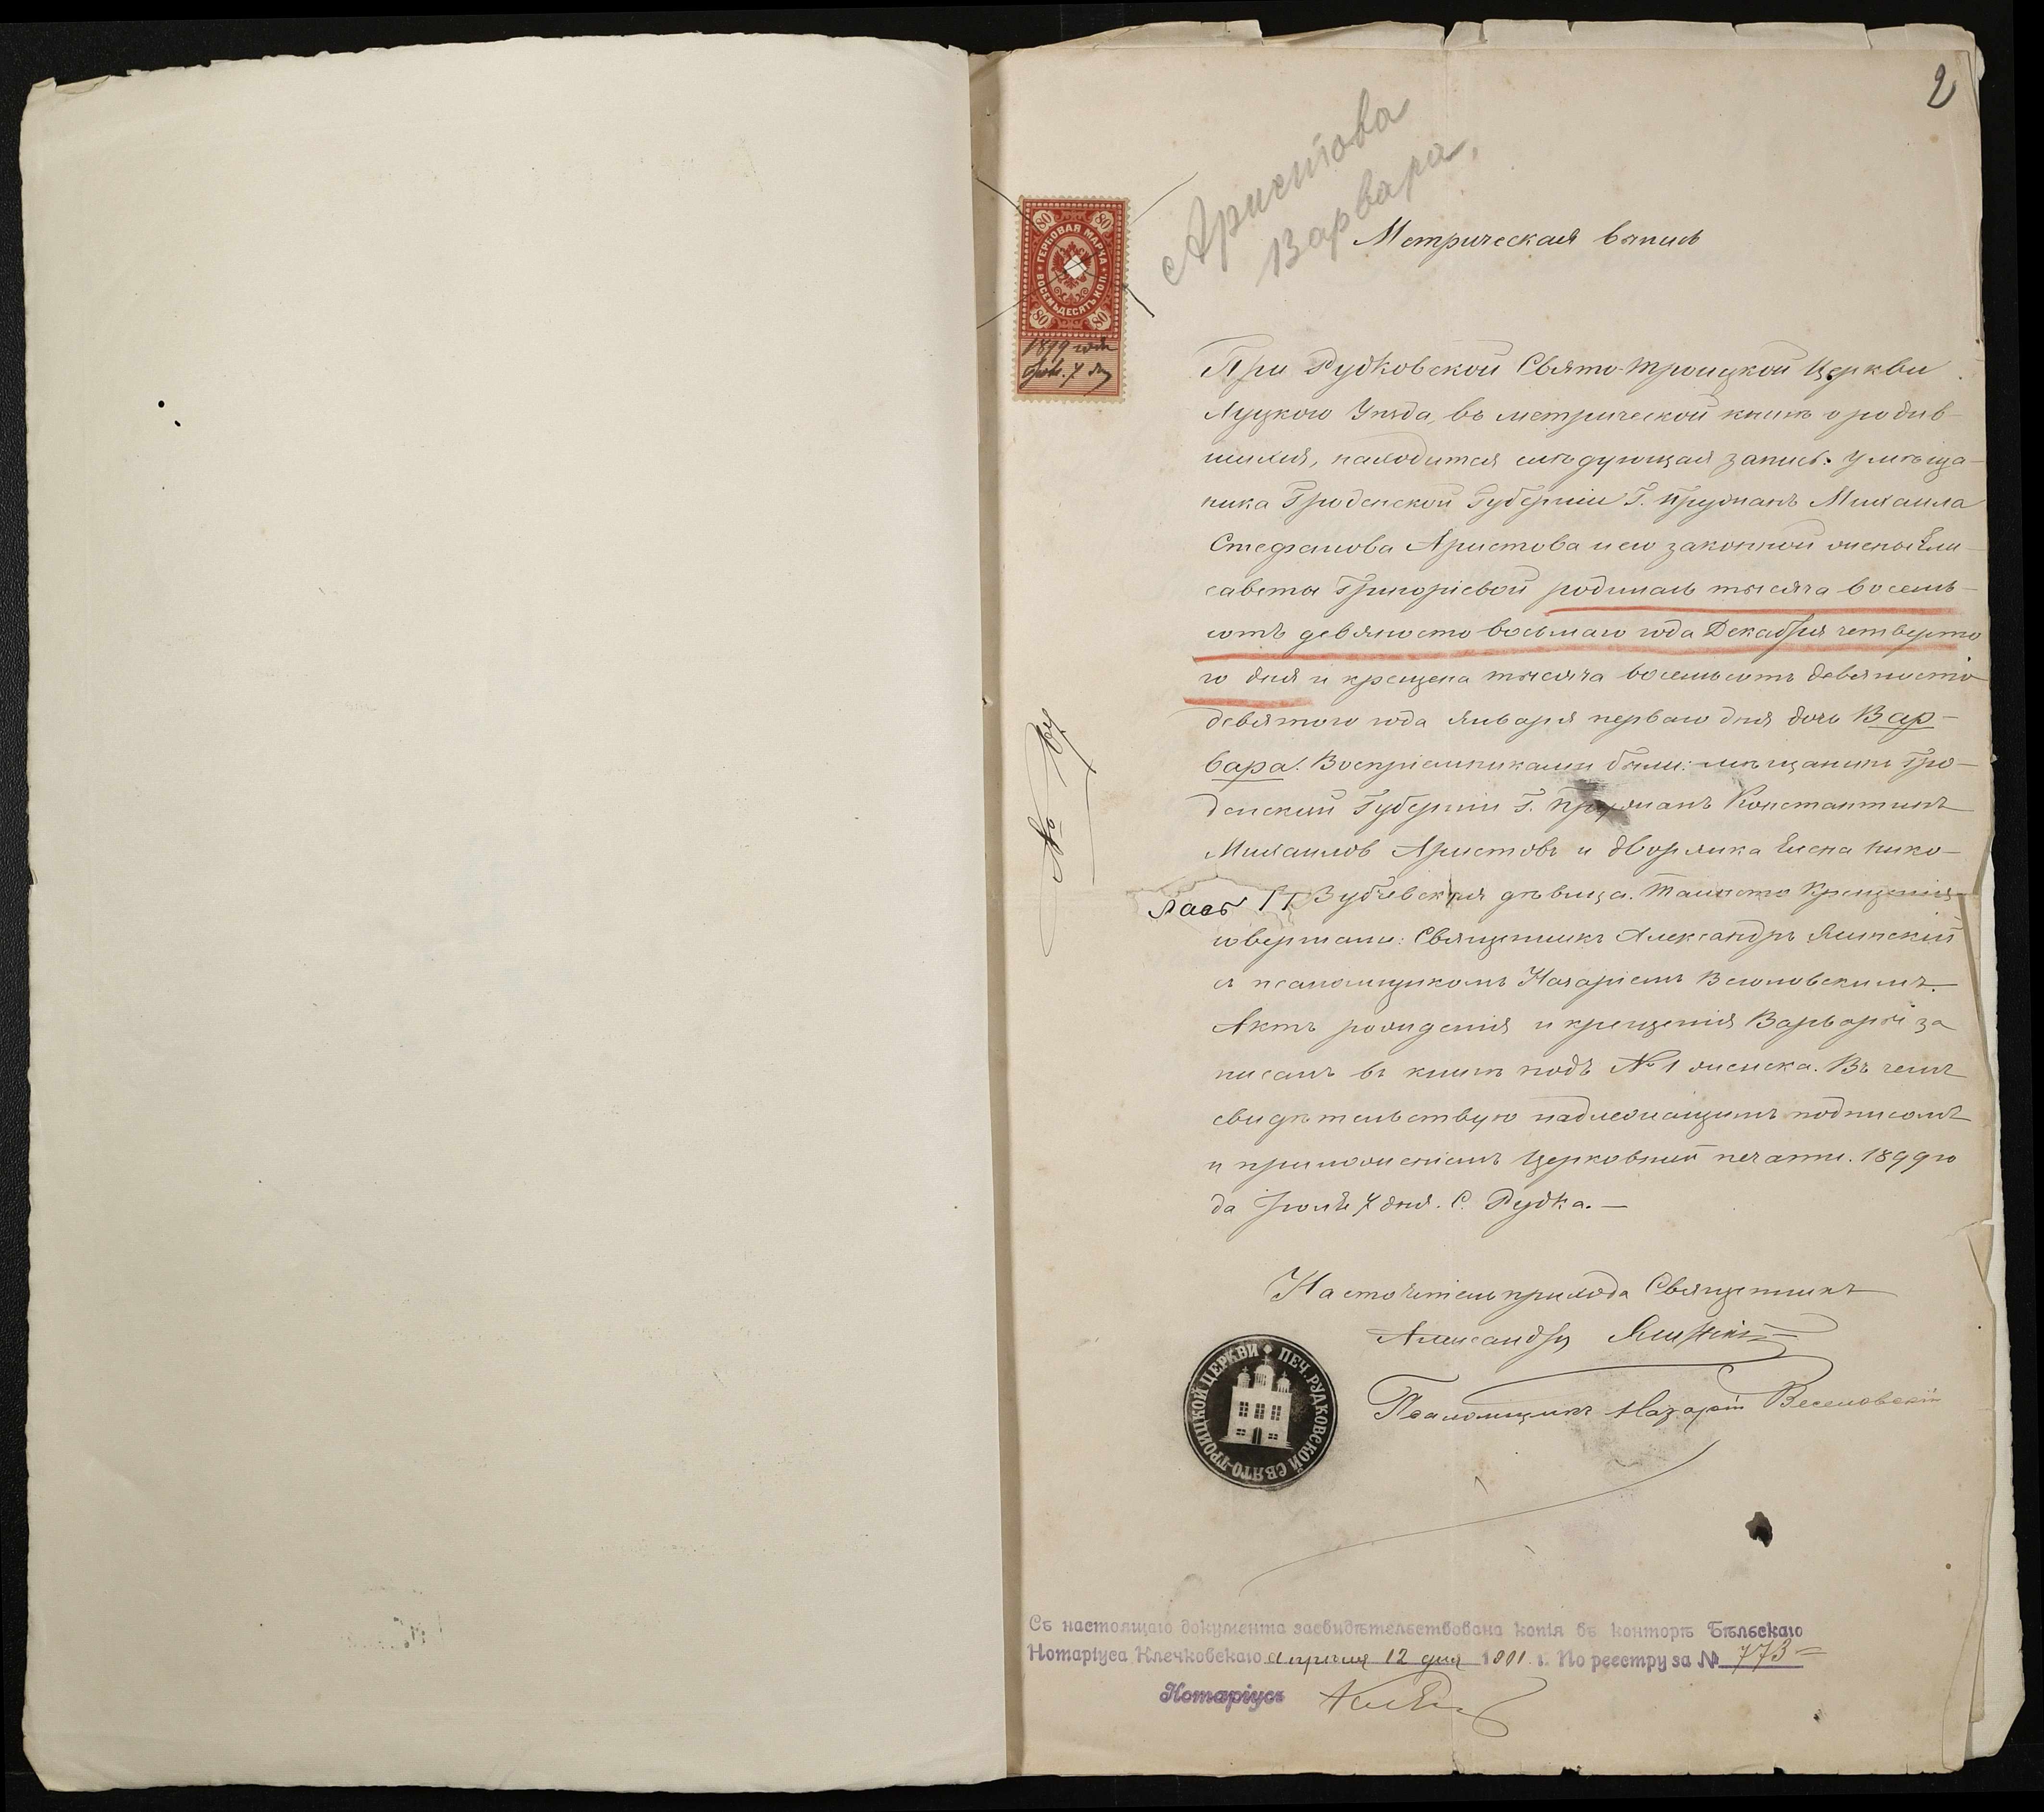 2
Аристова
Варвара,
Метрическая выпись
80 80
ГЕРБОВАЯ МАРКА
ВОСЕМЬДЕСЯТЪ КОП.
80 80
При Рудковской Свято-Троицкой Церкви
Луцкого Уѣзда, въ метрической книгѣ о родив-
шихся, находится слѣдующая запись: у мѣща-
ника Гроденской Губерніи Г. Пружанъ Михаила
Стефанова Аристова и его законной жены Ели-
саветы Григоріевой родилась тысяча восемь-
сотъ девяносто восьмаго года Декабря четверто
го дня и крещена тысяча восемьсотъ девяносто
девятого года Января перваго дня дочь Вар-
вара. Воспріемниками были: мѣщанинъ Гро-
денской Губерніи Г. Пружанъ Константинъ
Михаиловъ Аристовъ и дворянка Елена Нико-
лаев Зубчевская дѣвица. Таинство Крещенія
совершали: Священникъ Александръ Ялинскій
съ псаломщикомъ Назаріемъ Веселовскимъ.
Актъ рожденія и крещенія Варвары за
писанъ въ книгѣ подъ № 1 женска. Въ чемъ
свидѣтельствую надлежащимъ подписомъ
и приложеніемъ Церковной печати. 1899 го
да Іюля 7 дня. С. Рудка.—
№
Настоятель прихода Священникъ
Александръ
Псаломщикъ Назарій Веселовскій
ПЕЧ. РУДКОВСКОЙ СВЯТО-ТРОИЦКОЙ ЦЕРКВИ
Съ настоящаго документа засвидѣтельствована копія въ конторѣ Бѣльскаго
Нотаріуса Клечковскаго апрѣля 12 дня 1901 г. По реестру за № 773
Нотаріусъ